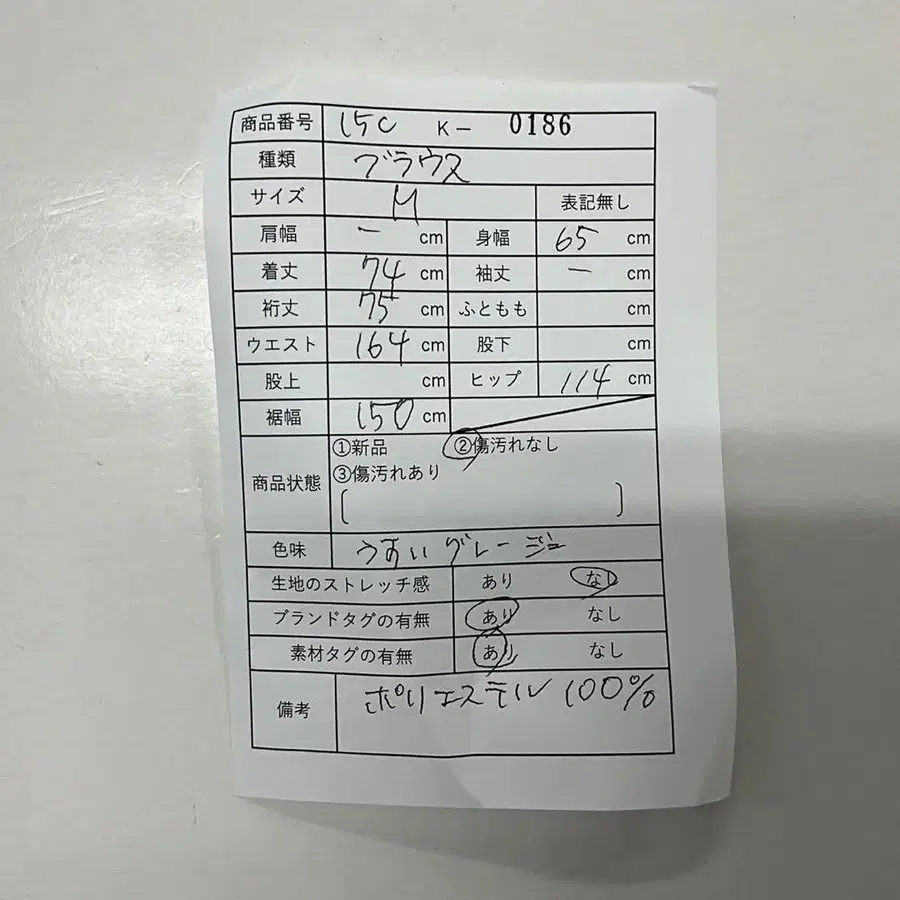 商品番号 15C K- 0186
種類 ブラウス
サイズ M 表記無し
肩幅 - cm 身幅 65 cm
着丈 74 cm 袖丈 - cm
裄丈 75 cm ふともも cm
ウエスト 164 cm 股下 cm
股上 cm ヒップ 114 cm
裾幅 150 cm
①新品 ②傷汚れなし
商品状態 ③傷汚れあり
( )
色味 うすいグレージュ
生地のストレッチ感 あり なし
ブランドタグの有無 あり なし
素材タグの有無 あり なし
備考 ポリエステル 100%